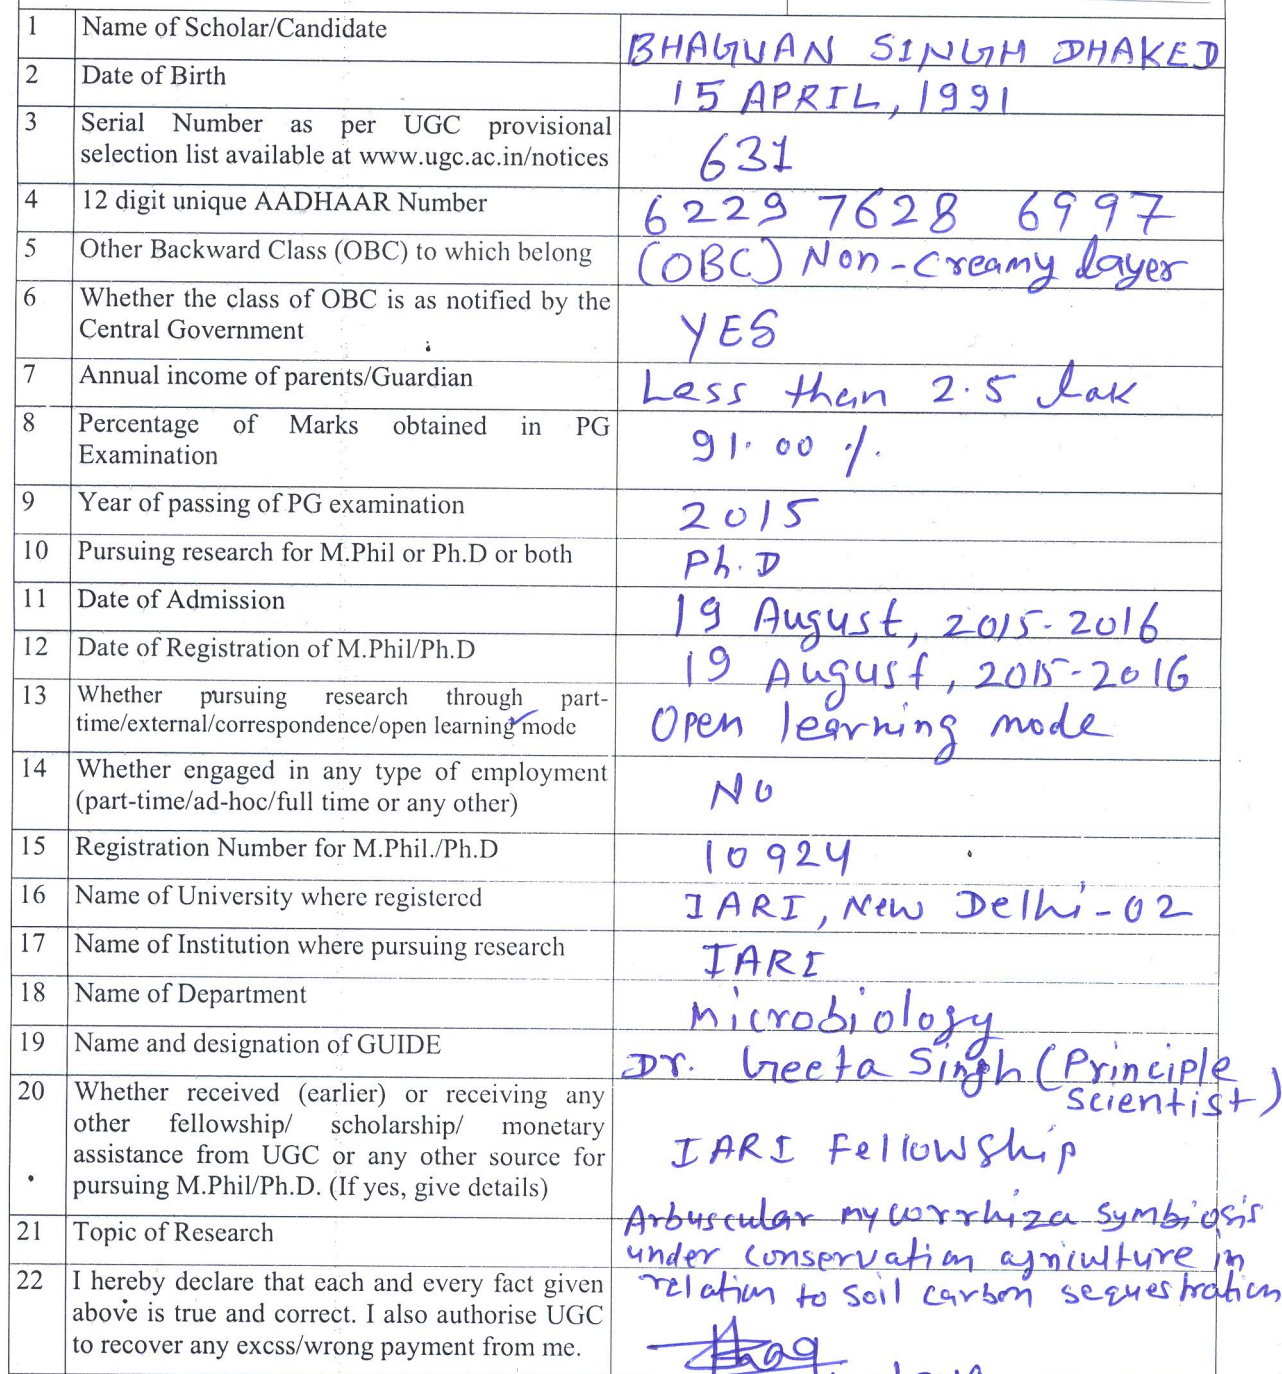 1 Name of Scholar/Candidate BHAGWAN SINGH DHAKED
2 Date of Birth 15 APRIL, 1991
3 Serial Number as per UGC provisional
selection list available at www.ugc.ac.in/notices 631
4 12 digit unique AADHAAR Number 6229 7628 6997
5 Other Backward Class (OBC) to which belong (OBC) Non-Creamy layer
6 Whether the class of OBC is as notified by the
Central Government YES
7 Annual income of parents/Guardian Less than 2.5 lak
8 Percentage of Marks obtained in PG
Examination 91.00 %
9 Year of passing of PG examination 2015
10 Pursuing research for M.Phil or Ph.D or both Ph.D
11 Date of Admission 19 August, 2015-2016
12 Date of Registration of M.Phil/Ph.D 19 August, 2015-2016
13 Whether pursuing research through part-
time/external/correspondence/open learning mode Open learning mode
14 Whether engaged in any type of employment
(part-time/ad-hoc/full time or any other) NO
15 Registration Number for M.Phil./Ph.D 10924
16 Name of University where registered IARI, New Delhi-02
17 Name of Institution where pursuing research IARI
18 Name of Department Microbiology
19 Name and designation of GUIDE Dr. Geeta Singh (Principle
Scientist)
20 Whether received (earlier) or receiving any
other fellowship/ scholarship/ monetary
assistance from UGC or any other source for
pursuing M.Phil/Ph.D. (If yes, give details) IARI Fellowship
21 Topic of Research Arbuscular mycorrhiza symbiosis
under conservation agriculture in
relation to soil carbon sequestration
22 I hereby declare that each and every fact given
above is true and correct. I also authorise UGC
to recover any excss/wrong payment from me.